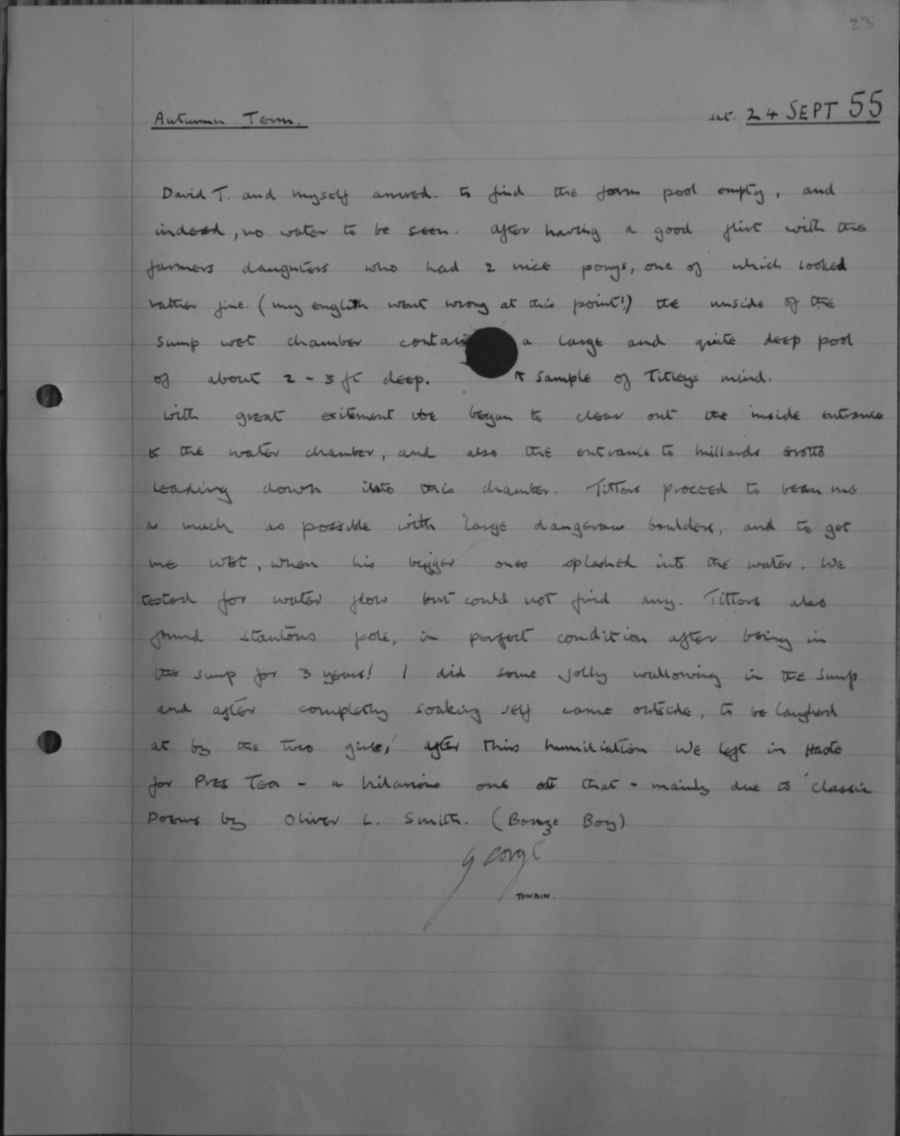 23
Autumn Term. Sat. 24 SEPT 55
David T. and myself arrived to find the farm pool empty, and
indeed, no water to be seen. After having a good flirt with the
farmers daughters who had 2 nice ponys, one of which looked
rather fine. (my english went wrong at this point!) the inside of the
sump wet chamber a large and quite deep pool
of about 2 - 3 ft deep. sample of Titleys mind.
With great excitement we began to clear out the inside entrance
to the water chamber, and also the entrance to Hillards Grotto
leading down into this chamber. Titters proceed to bean me
as much as possible with large dangerous boulders, and to get
me wet, when his bigger ones splashed into the water. We
tested for water flow but could not find any. Titters also
found pole, in perfect condition after being in
the sump for 3 years! I did some jolly wallowing in the sump
and after completly soaking self came outside, to be laughed
at by the two girls! After this humiliation we left in Haste
for Pres Tea - a hilarious one at that - mainly due to 'classic
Poems by Oliver L. Smith. ( Boy)
George